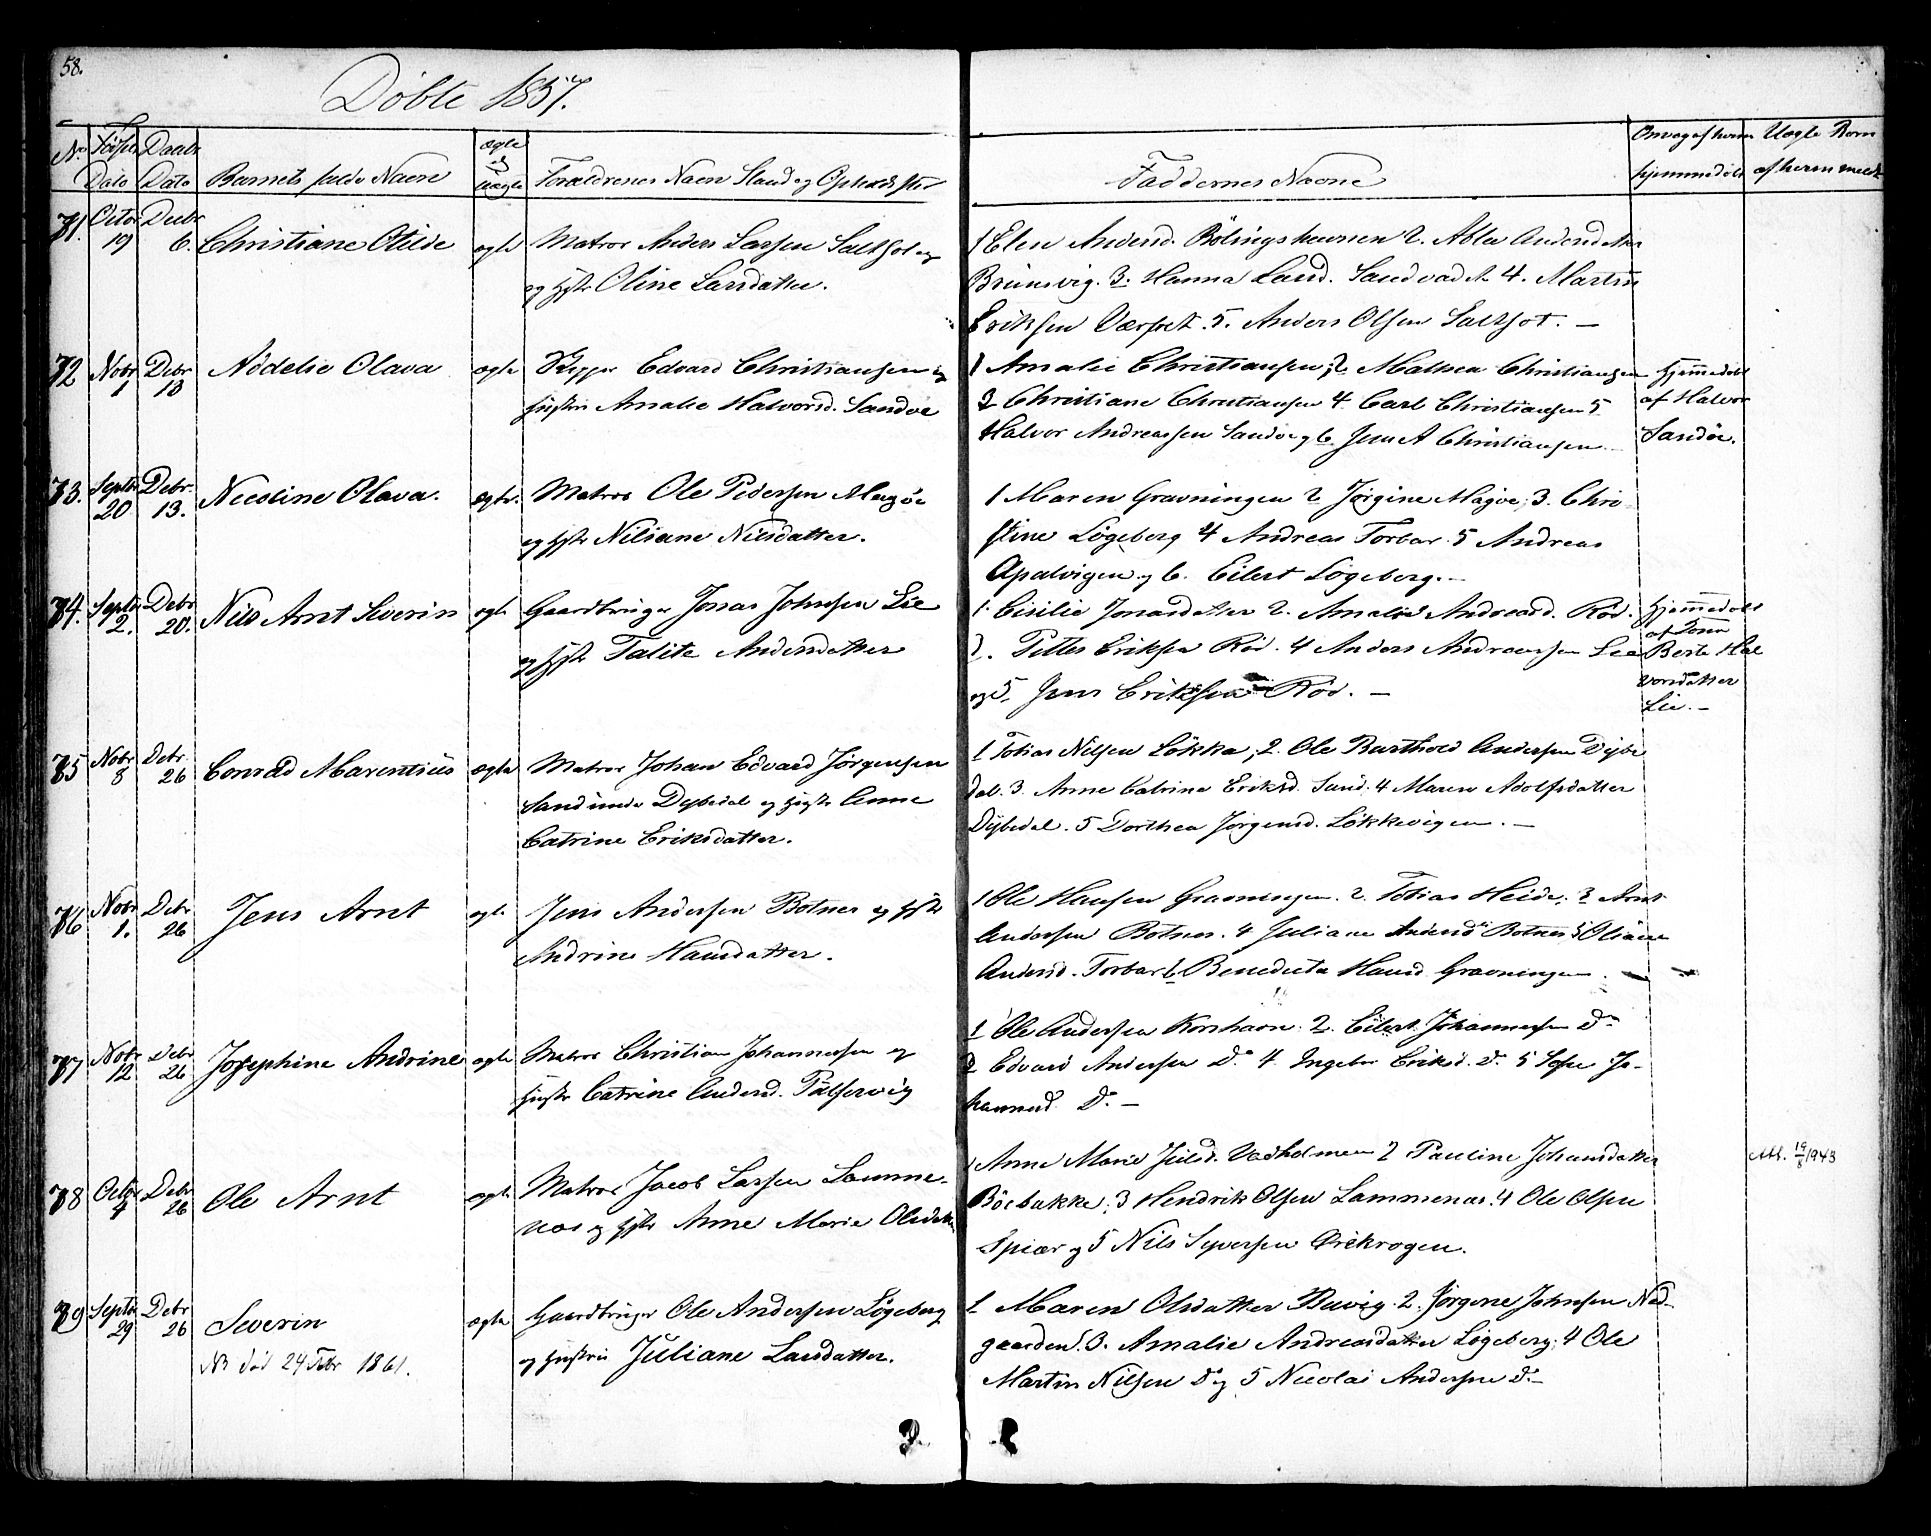 58.
Döbte 1857.
No Fødsels Daabs Barnets fulde Navn ægte Forældrenes Navn Stand og Opholdssted
Dato Dato uægte
Faddernes Navne
hjemmedöbt Uægte Börn
71. Octbr 19 Decbr 6. Christiane Otilde ægte Matros Anders Larsen Saltholt
og hustr Oline Larsdatter.
1 Elen Andersd. 2. Ablea Andersdatter
Brunsvig. 3. Hanna Larsd. 4. Martin
Eriksen 5. Anders Olsen —
72 Nobr 1 Debr 13 Olava ægte Skipper Edvard Christiansen og
hustru Amalie Halvorsd. Sandøe
1 Amalie Christiansen, 2. Mathea Christiansen
3 Christiane Christiansen 4 Carl Christiansen 5
Halvor Andreassen Sandøe og 6. Jens A Christiansen
Hjemmedöbt
af Halvor
Sandöe.
73. Septbr 20 Debr. 13. Nicoline Olava. ægte. Matros Ole Pedersen Magøe
og hustr Niliane Nilsdatter.
1 Maren Gravningen 2 Jørgine Magöe, 3. Chri-
stine Lögeberg 4 Andreas Torbar 5 Andreas
Apalvigen og 6. Eilert Lögeberg. —
74. Septbr 2. Debr 20. Nils Arnt Severin ægte Gaardbruger Jonas Johnsen Lie
og hustr Talite Andersdatter
1. Cicilie Jonasdatter 2. Amalie Andreasd. Röd.
3. Petter Eriksen Röd. 4 Anders Andreassen Lie
og 5. Jens Eriksen Röd. —
Hjemmedöbt
af Jomf
Berte Hal
vorsdatter
Lie. —
75 Nobr 8 Debr 26 Conrad Marentius ægte Matros Johan Edvard Jörgensen
Sand under Dybedal og hustr Anne
Catrine Eriksdatter.
1 Tobias Nilsen Lökka, 2. Ole Barthold Andersen Dybe
dal. 3. Anne Catrine Eriksd. Sand. 4 Maren Adolfsdatter
Dybedal. 5 Dorthea Jörgensd. Lökkevigen. —
76 Nobr 1. Debr 26 Jens Arnt ægte Jens Andersen Botnes og hustr
Andrine Hansdatter.
1 Ole Hansen Gravningen. 2. Tobias Heide, 3 Arnt
Andersen Botnes. 4 Juliane Andersd Botnes 5 Oliane
Andersd. Torbar 6 Benedicta Hansd Gravningen. —
77 Nobr 12 Debr 26 Josephine Andrine ægte Matros Christian Johannessen og
hustr Catrine Andersd.
1 Ole Andersen Korshavn. 2. Eilert Johannessen Do
3 Edvard Andersen Do 4. Ingebr Eriksd. Do 5 Sofie Jo-
hannesd. Do —
78 Octbr 4 Debr 26 Ole Arnt ægte Matros Jacob Larsen Lamme-
næs og hustr Anne Marie Olsdatter
1 Anne Marie 2 Pauline Johansdatter
Böebakke, 3 Hendrik Olsen Lammenæs. 4 Ole Olsen
Spiær og 5 Nils Syversen
Att. 19/8 1943
79 Septbr 29 Debr 26 Severin ægte Gaardbruger Ole Andersen Lögeberg
NB död 24 Febr 1861. og hustru Juliane Larsdatter.
1 Maren Olsdatter Buvig. 2. Jörgine Johnsen Ned-
gaarden. 3. Amalie Andreasdatter Lögeberg, 4 Ole
Martin Nilsen Do og 5 Nicolai Andersen Do —